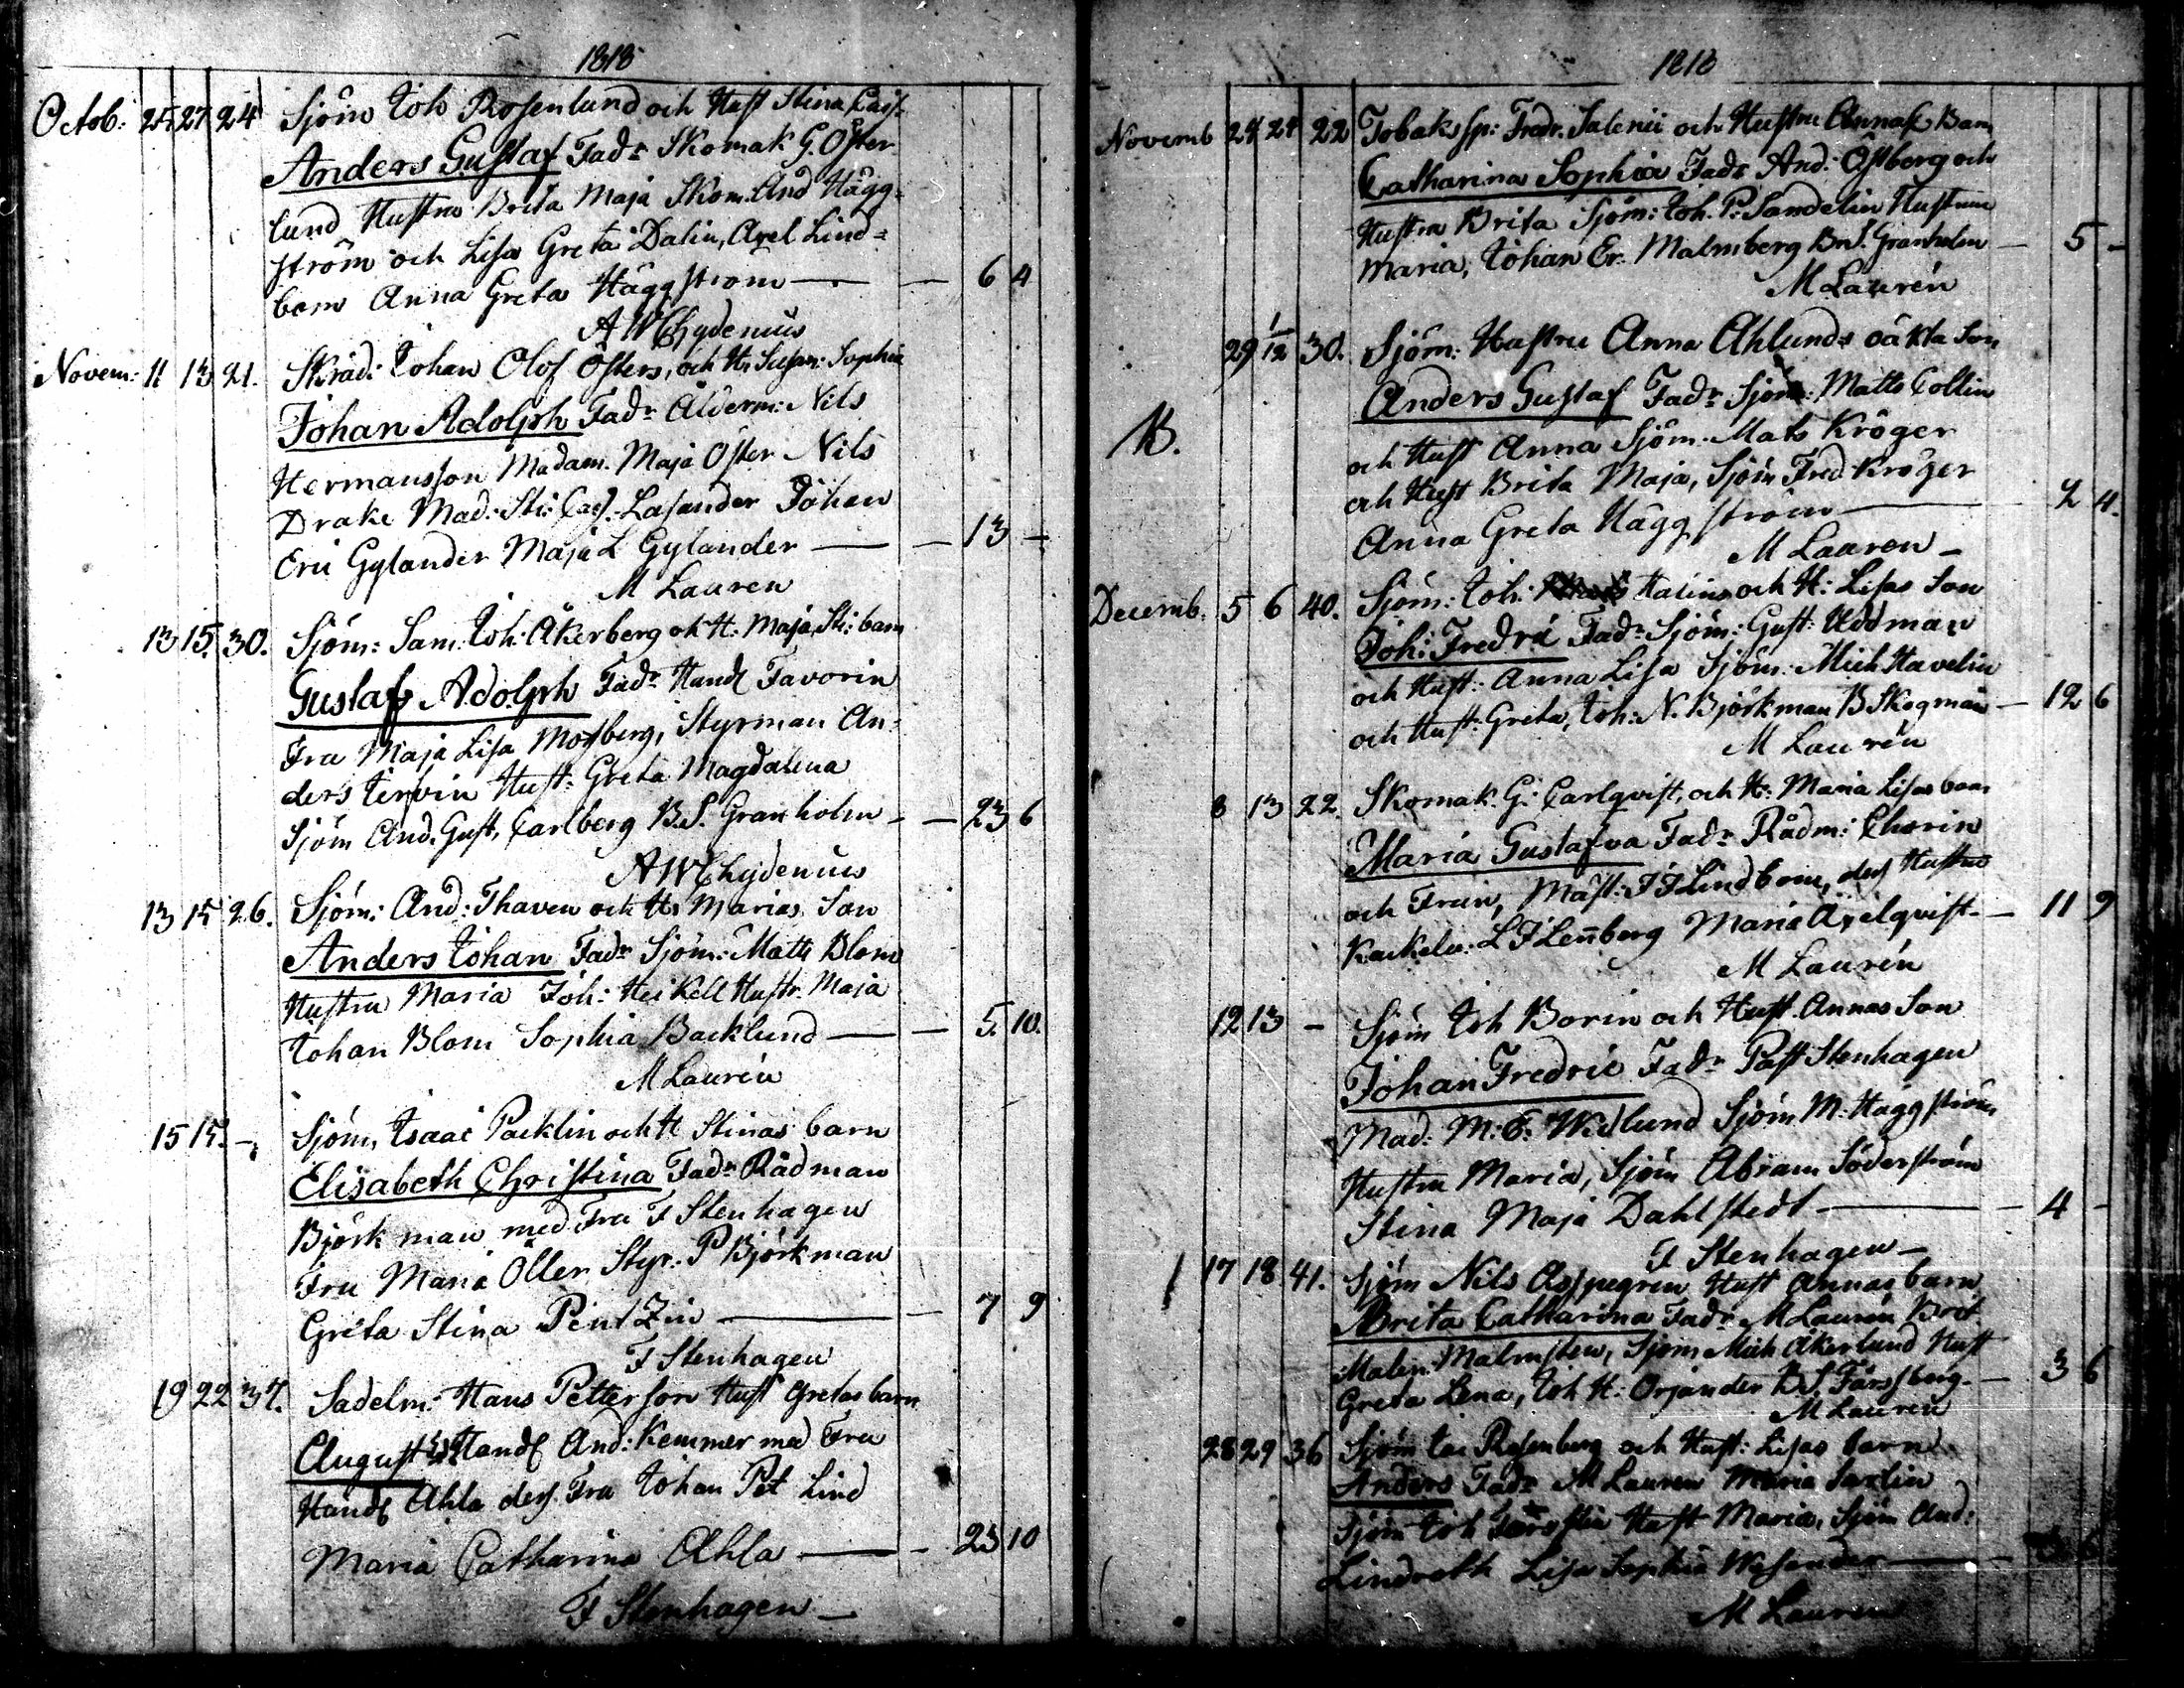 1818
Octob: 25. 27 24 Sjöm Joh Rosenlund och Hust Stina Cais:
Anders Gustaf Fadr Skomak G. Öster
lund Hustru Brita Maja Skom. And Hägg-
ström och Lisa Greta Dalin, Axel Lind-
bom Anna Greta Häggström — — 6 4
A W Chydenius
Novem: 11 13 21. Skräd: Johan Olof Östers, och H: Susan: Sophia
Johan Adolph Fadr Ålderm: Nils
Hermansson Madam. Maja Öster Nils
Drake Mad: Sti: Cas. Lasander Johan
Eric Gylander Maja L Gylander — — 13 —
M Lauren
13 15. 30. Sjöm: Sam: Joh: Åkerberg och H: Maja Sti: barn
Gustaf Adolph Fadr Handl Favorin
Fru Maja Lisa Mosberg, Styrman An-
ders Hust: Greta Magdalena
Sjöm And. Gust. Carlberg B. S. Granholm — — 23 6
A W Chydenius
13 15 26. Sjöm: And: Thaven och H: Marias Son
Anders Johan Fadr Sjöm: Matts Blom
Hustru Maria Joh: Heikell Hustr. Maja
Johan Blom Sophia Backlund — — 5. 10.
M Laurén
15 15. — Sjöm, Isaac Packlin och H Stinas barn
Elisabeth Christina Fadr Rådman
Björkman med Fru F Stenhagen
Fru Maria Öller Styr: P Björkman
Greta Stina Pentzin — — 7 9
F Stenhagen
19 22 34. Sadelm: Hans Petterson Hust Gretas barn
August Handl And: Kemmer med Fru
Handl Ahla dess Fru Johan Pet Lind
Maria Catharina Ahla — — 23 10
F Stenhagen —
1818
Novemb 24 24 22 Tobakssp: Fredr. Salenii och Hustru Annas Barn
Catharina Sophia Fadr And: Östberg och
Hustru Brita Sjöm: Joh. P: Sandelin Hustru
Maria, Johan Er. Malmberg Br. S. Granholm — 5 —
M Laurén
29 1/12 30. Sjöm: Hustru Anna Ahlunds oäkta Son
Anders Gustaf Fadr Sjöm: Matts Collin
och Hust Anna Sjöm: Mats Kröger
och Hust Brita Maja, Sjöm Fred Kröger
Anna Greta Häggström — 2 4.
M Lauren —
Decemb. 5 6 40. Sjöm: Joh: Halin och H: Lisas Son
Joh: Fredric Fadr Sjöm: Gust: Uddman
och Hust: Anna Lisa Sjöm: Mich Havelin
och Hust: Greta, Joh: N. Björkman B Skogman — 12 6
M Laurén
8 13 22 Skomak. G: Carlqvist, och H: Maria Lisas barn
Maria Gustafva Fadr Rådm: Chorin
och Frun, Mäst: J F Lindbom, dess Hustru
L F Lenberg Maria Axelqvist — 11 9
M Laurén
12 13 — Sjöm Joh Borin och Hust. Annas Son
Johan Fredric Fadr Past Stenhagen
Mad: M: C: Widlund Sjöm M: Häggström
Hustru Maria, Sjöm Abram Söderström
Stina Maja Dahlstedt — — 4 —
F Stenhagen —
17 18 41. Sjöm Nils Aspegren Hust Annas barn
Brita Catharina Fadr M Laurén Brit.
Malen: Malmsten, Sjöm Mich Åkerlund Hust
Greta Lena, Joh H: Orjander B S. Forssberg — 3 6
M Laurén
28 29 36 Sjöm Rosenberg och Hust: Lisas barn
Anders Fadr M Lauren Maria Saxlin
Sjöm Joh Hust Maria, Sjöm And:
Lindroth Lisa Sophia Wesander —
M Lauren